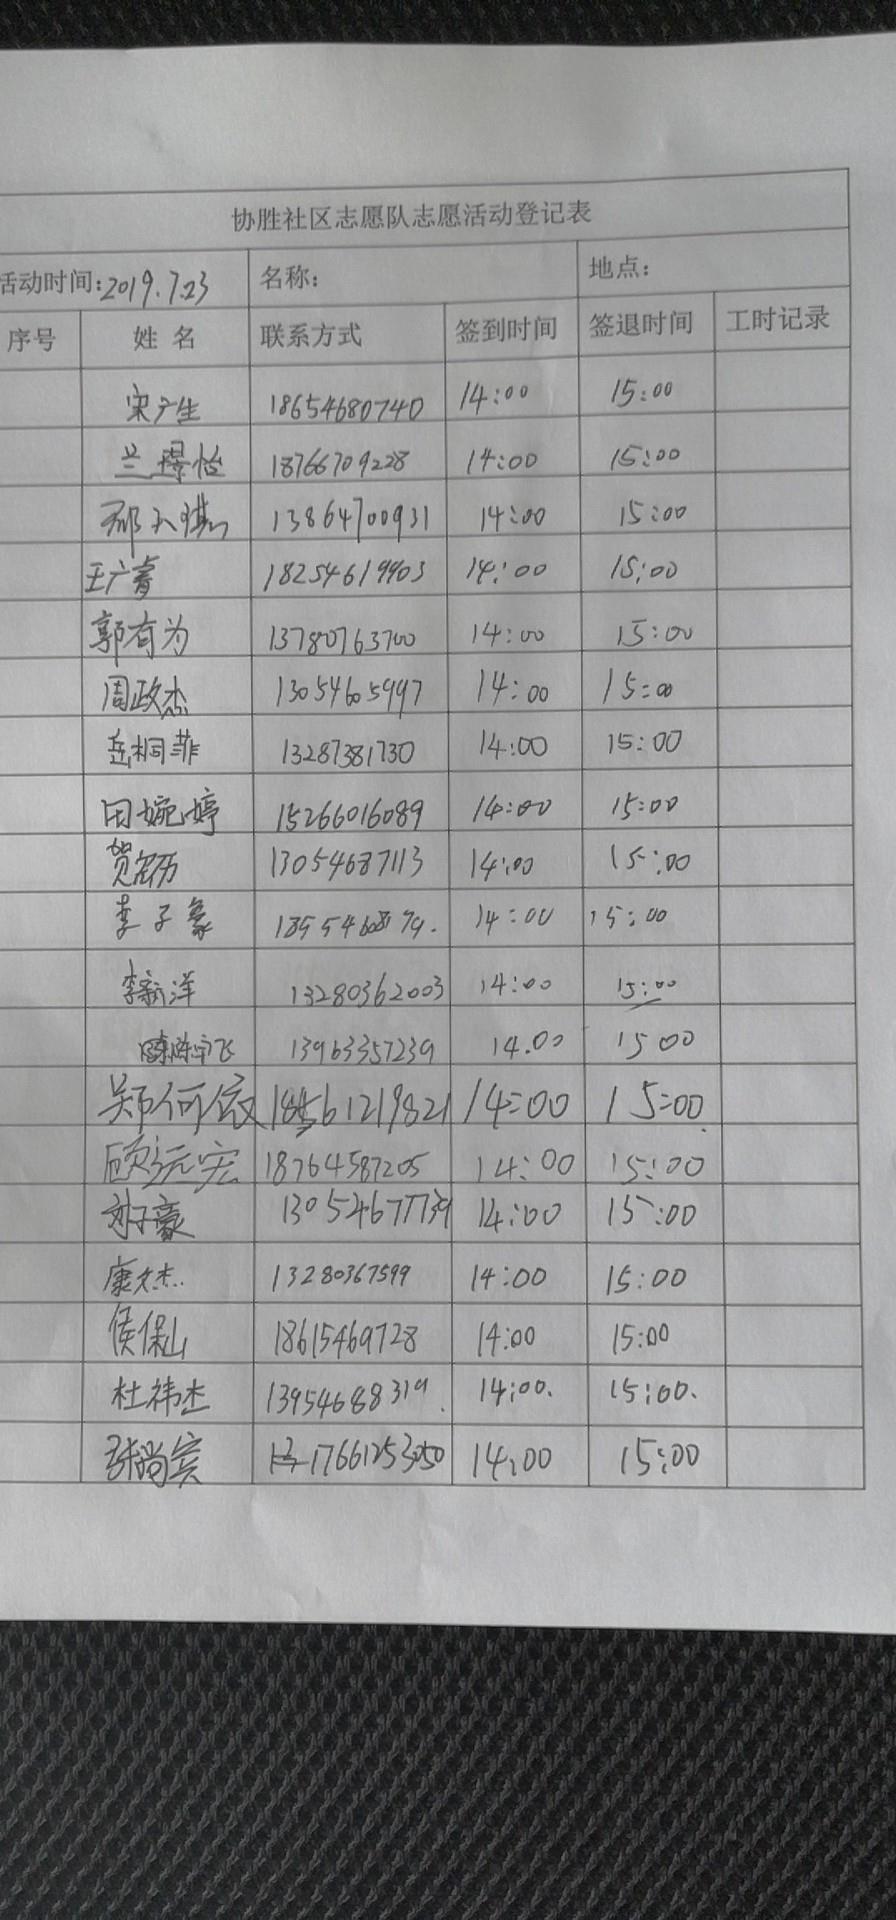 协胜社区志愿队志愿活动登记表
活动时间:2019.7.23 名称: 地点:
序号 姓名 联系方式 签到时间 签退时间 工时记录
宋广生 18654680740 14:00 15:00
兰璟怡 18766709228 14:00 15:00
13864700931 14:00 15:00
王广睿 18254619903 14:00 15:00
郭有为 13780763700 14:00 15:00
周政杰 13054605997 14:00 15:00
岳桐菲 13287381730 14:00 15:00
田婉婷 15266016089 14:00 15:00
13054687113 14:00 15:00
李子豪 14:00 15:00
李新洋 13280362003 14:00 15:00
陈宇飞 13963357239 14.00 15 00
郑何依 14:00 15:00
顾远宏 18764587205 14:00 15:00
刘子豪 13054677739 14:00 15:00
康文杰 13280367599 14:00 15:00
侯保山 18615469728 14:00 15:00
杜祎杰 13954688319. 14:00. 15:00.
张尚宾 17661253050 14:00 15:00